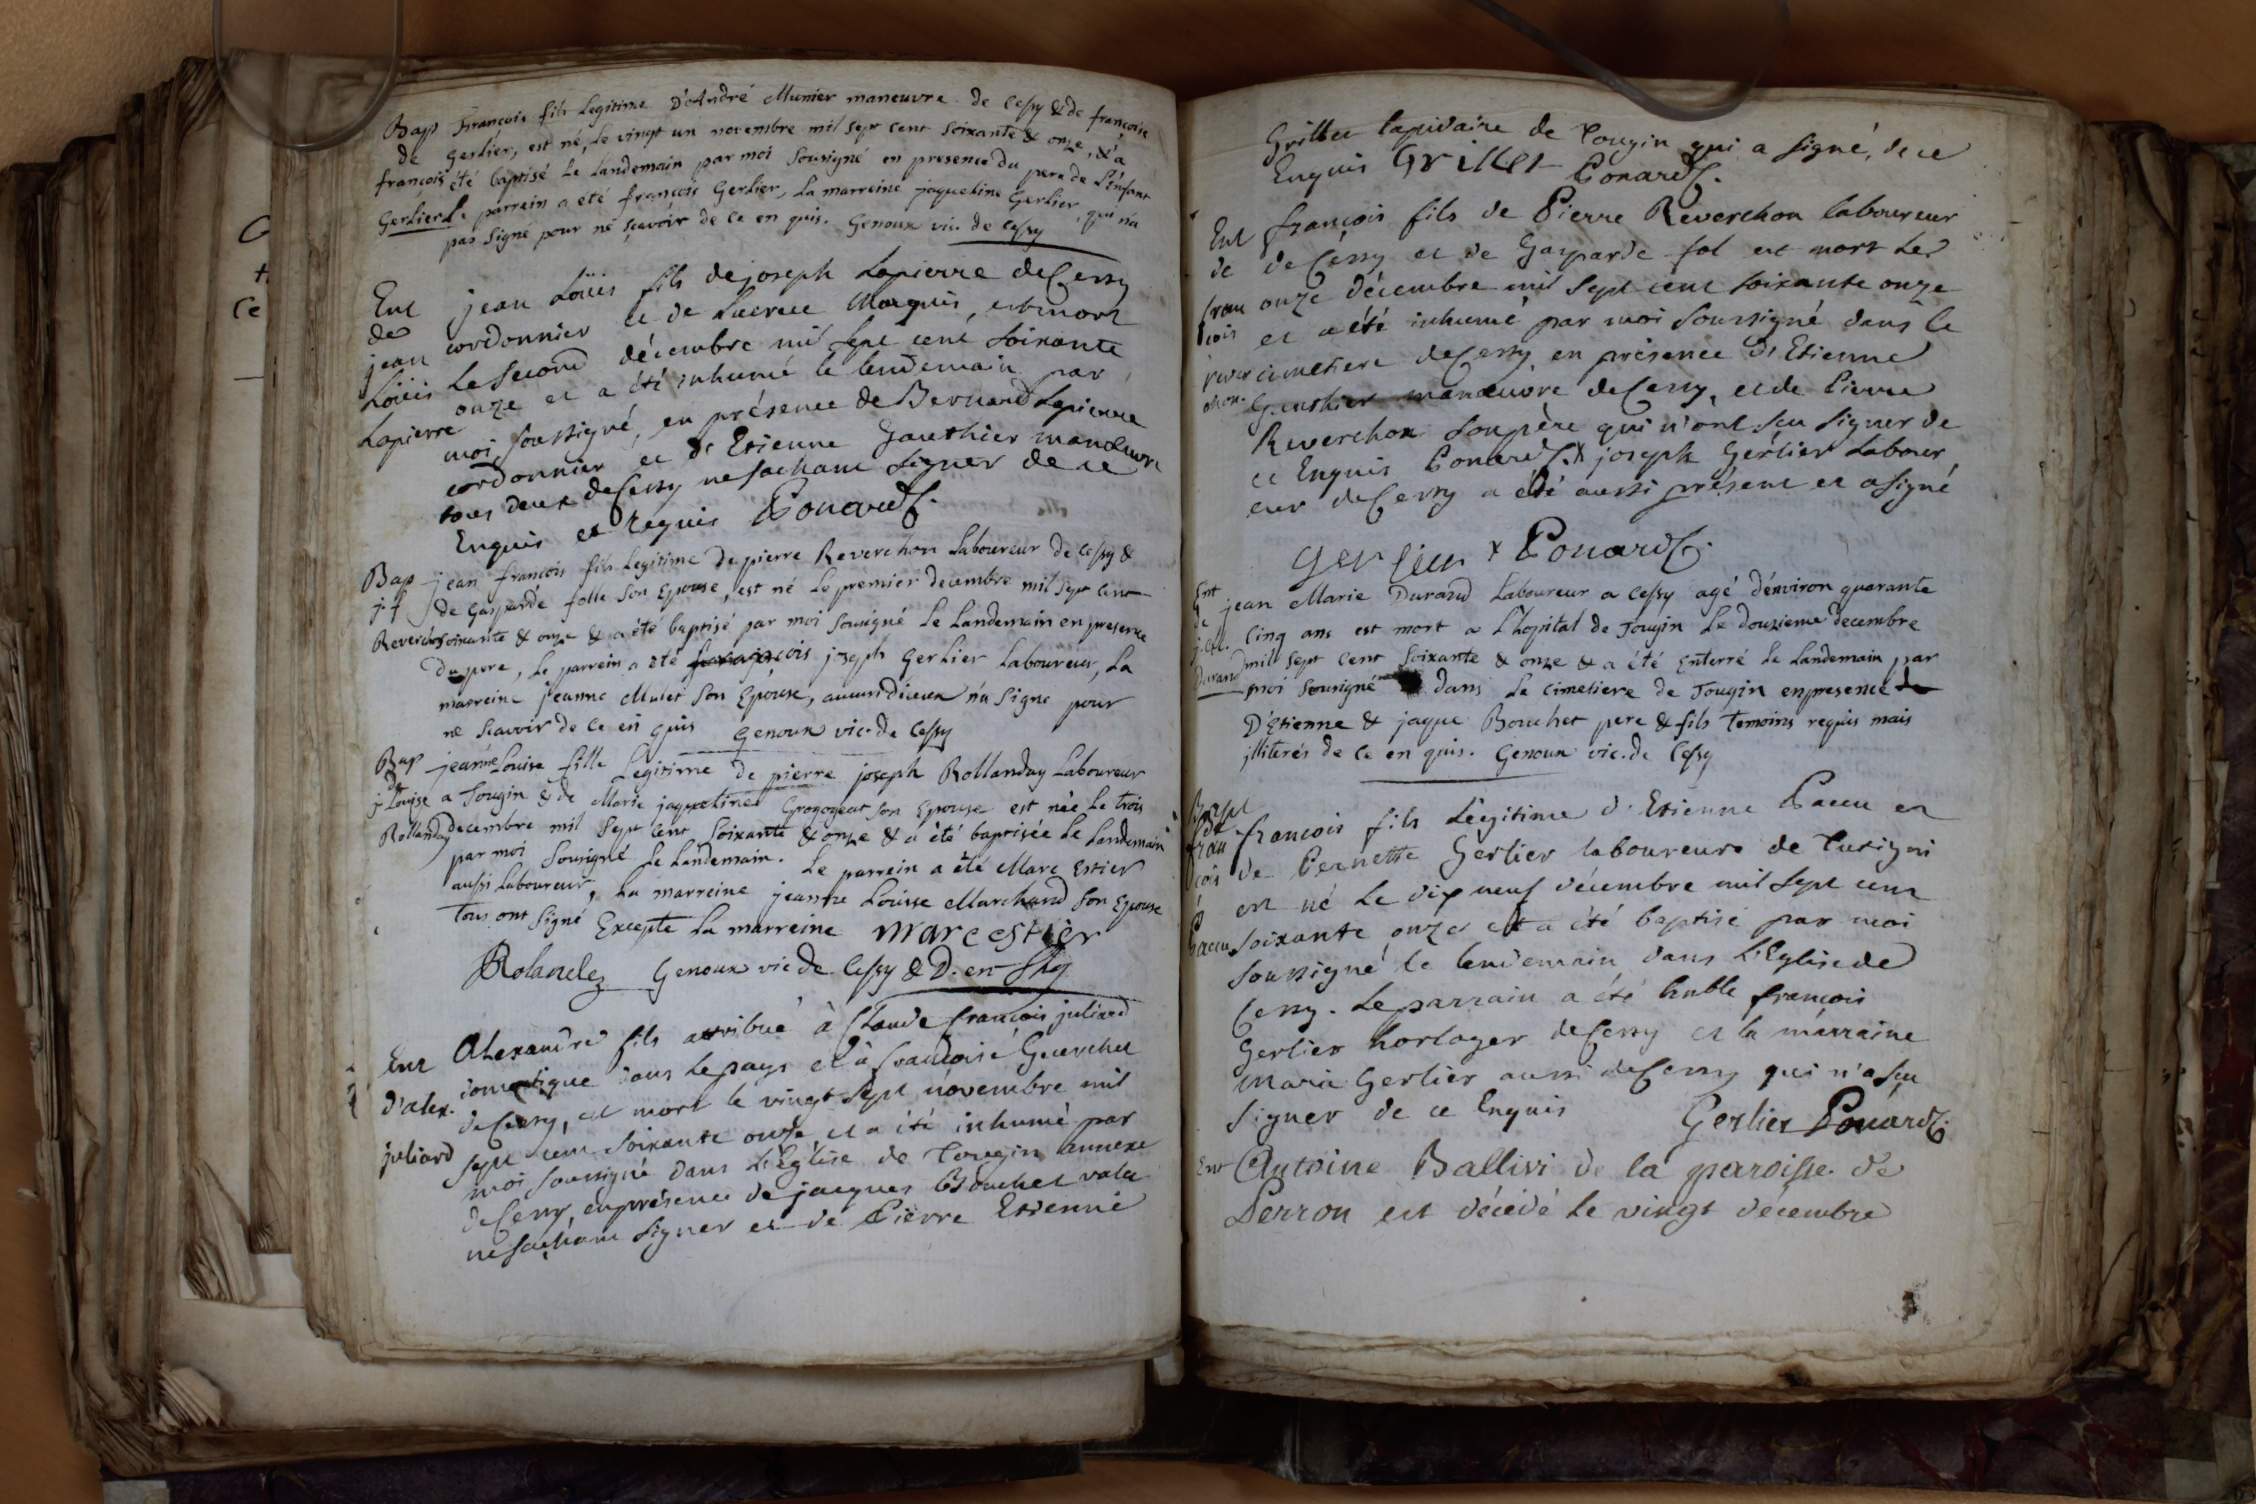 Bap françois fils legitime D'André Munier maneuvre de Cessy & de françoise
de Gerlier, est né, le vingt un novembre mil sept cent soixante & onze, & a
françois été baptisé le landemain par moi sousigné en presence du pere de l'enfant
Gerlier parrein a eté françois Gerlier, la marreine jaqueline Gerlier, qui n'a
pas signé pour ne sçavoir de ce en quis. Genoux vic. de Cessy
Ent jean Loüis fils de joseph Lapierre de Cessy
de cordonnier et de Lucrece Marquis, est mort
jean le second décembre mil sept cent soixante
Loüis onze et a été inhumé le lendemain par
Lapierre moi soussigné, en présence de Bernard Lapierre
cordonnier et d'Etienne Gauthier manœuvre
tous deux de Cessy ne sachant signer de ce
Enquis et requis Ponard
Bap jean françois fils legitime de pierre Reverchon Laboureur de Cessy &
j. f. de Gasparde folle son Epouse, est né le premier decembre mil sept cent
Reverchon soixante & onze & a été baptisé par moi sousigné le landemain en presence
du pere, le parrein a été joseph Gerlier Laboureur, la
marreine jeanne Mulet son Epouse, aucun d'iceux n'a signé pour
ne sçavoir de ce en quis Genoux vic. de Cessy
Bap jeanne Louise fille legitime de pierre joseph Rollanday Laboureur
de
j Louise a Tougin & de Marie jaqueline Grosgogeat son Epouse est née le trois
Rollanday decembre mil sept cent soixante & onze & a été baptisée le landemain
par moi sousigné le landemain. Le parrein a été Marc Estier
aussi laboureur, la marreine jeanne Louise Marchand son Epouse
tous ont signé Excepté la marreine marc estier
Rolandez Genoux vic de Cessy & D. en
Ent Alexandre fils attribué à Claude françois juliard
domestique dans le pays et à françoise Guerchet
d'alex. de Cessy, est mort le vingt sept novembre mil
juliard sept cent soixante onze et a été inhumé par
moi soussigné dans l'Eglise de Tougin annexe
de Cessy, en présence de jacques Bouchet valet
ne sachant signer et de Pierre Etienne
Grillet lapidaire de Tougin qui a signé, de ce
Enquis Grillet Ponard
Ent françois fils de Pierre Reverchon laboureur
de de Cessy et de Gasparde fol est mort le
fran onze décembre mil sept cent soixante onze
çois et a été inhumé par moi soussigné dans le
rever cimetiere de Cessy, en présence d'Etienne
chon. Gauthier manœuvre de Cessy, et de Pierre
Reverchon son père qui n'ont seu signer de
ce Enquis Ponard. x joseph Gerlier Labour
eur de Cessy a été aussi présent et a signé
gerlier x Ponard
Ent jean Marie Durand Laboureur a Cessy agé d'environ quarante
de cinq ans est mort a L'hopital de Tougin le douzieme decembre
j. M. mil sept cent soixante & onze & a été enterré le landemain par
Durand moi sousigné dans le cimetiere de Tougin en presence de
D'Etienne & jaque Bouchet pere & fils temoins requis mais
jlliterés de ce en quis. Genoux vic. de Cessy
Bapt
de
fran françois fils légitime d'Etienne Paccu et
çois de Pernette Gerlier laboureurs de Tutigni
est né le dix neuf décembre mil sept cent
Paccu soixante onze et a été baptisé par moi
soussigné le lendemain dans l'Eglise de
Cessy. Le parrain a été huble françois
Gerlier horloger de Cessy et la marraine
Marie Gerlier aussi de Cessy qui n'a seu
signer de ce Enquis Gerlier Ponard
Ent Antoine Ballivi de la paroisse de
Perron est décédé le vingt décembre